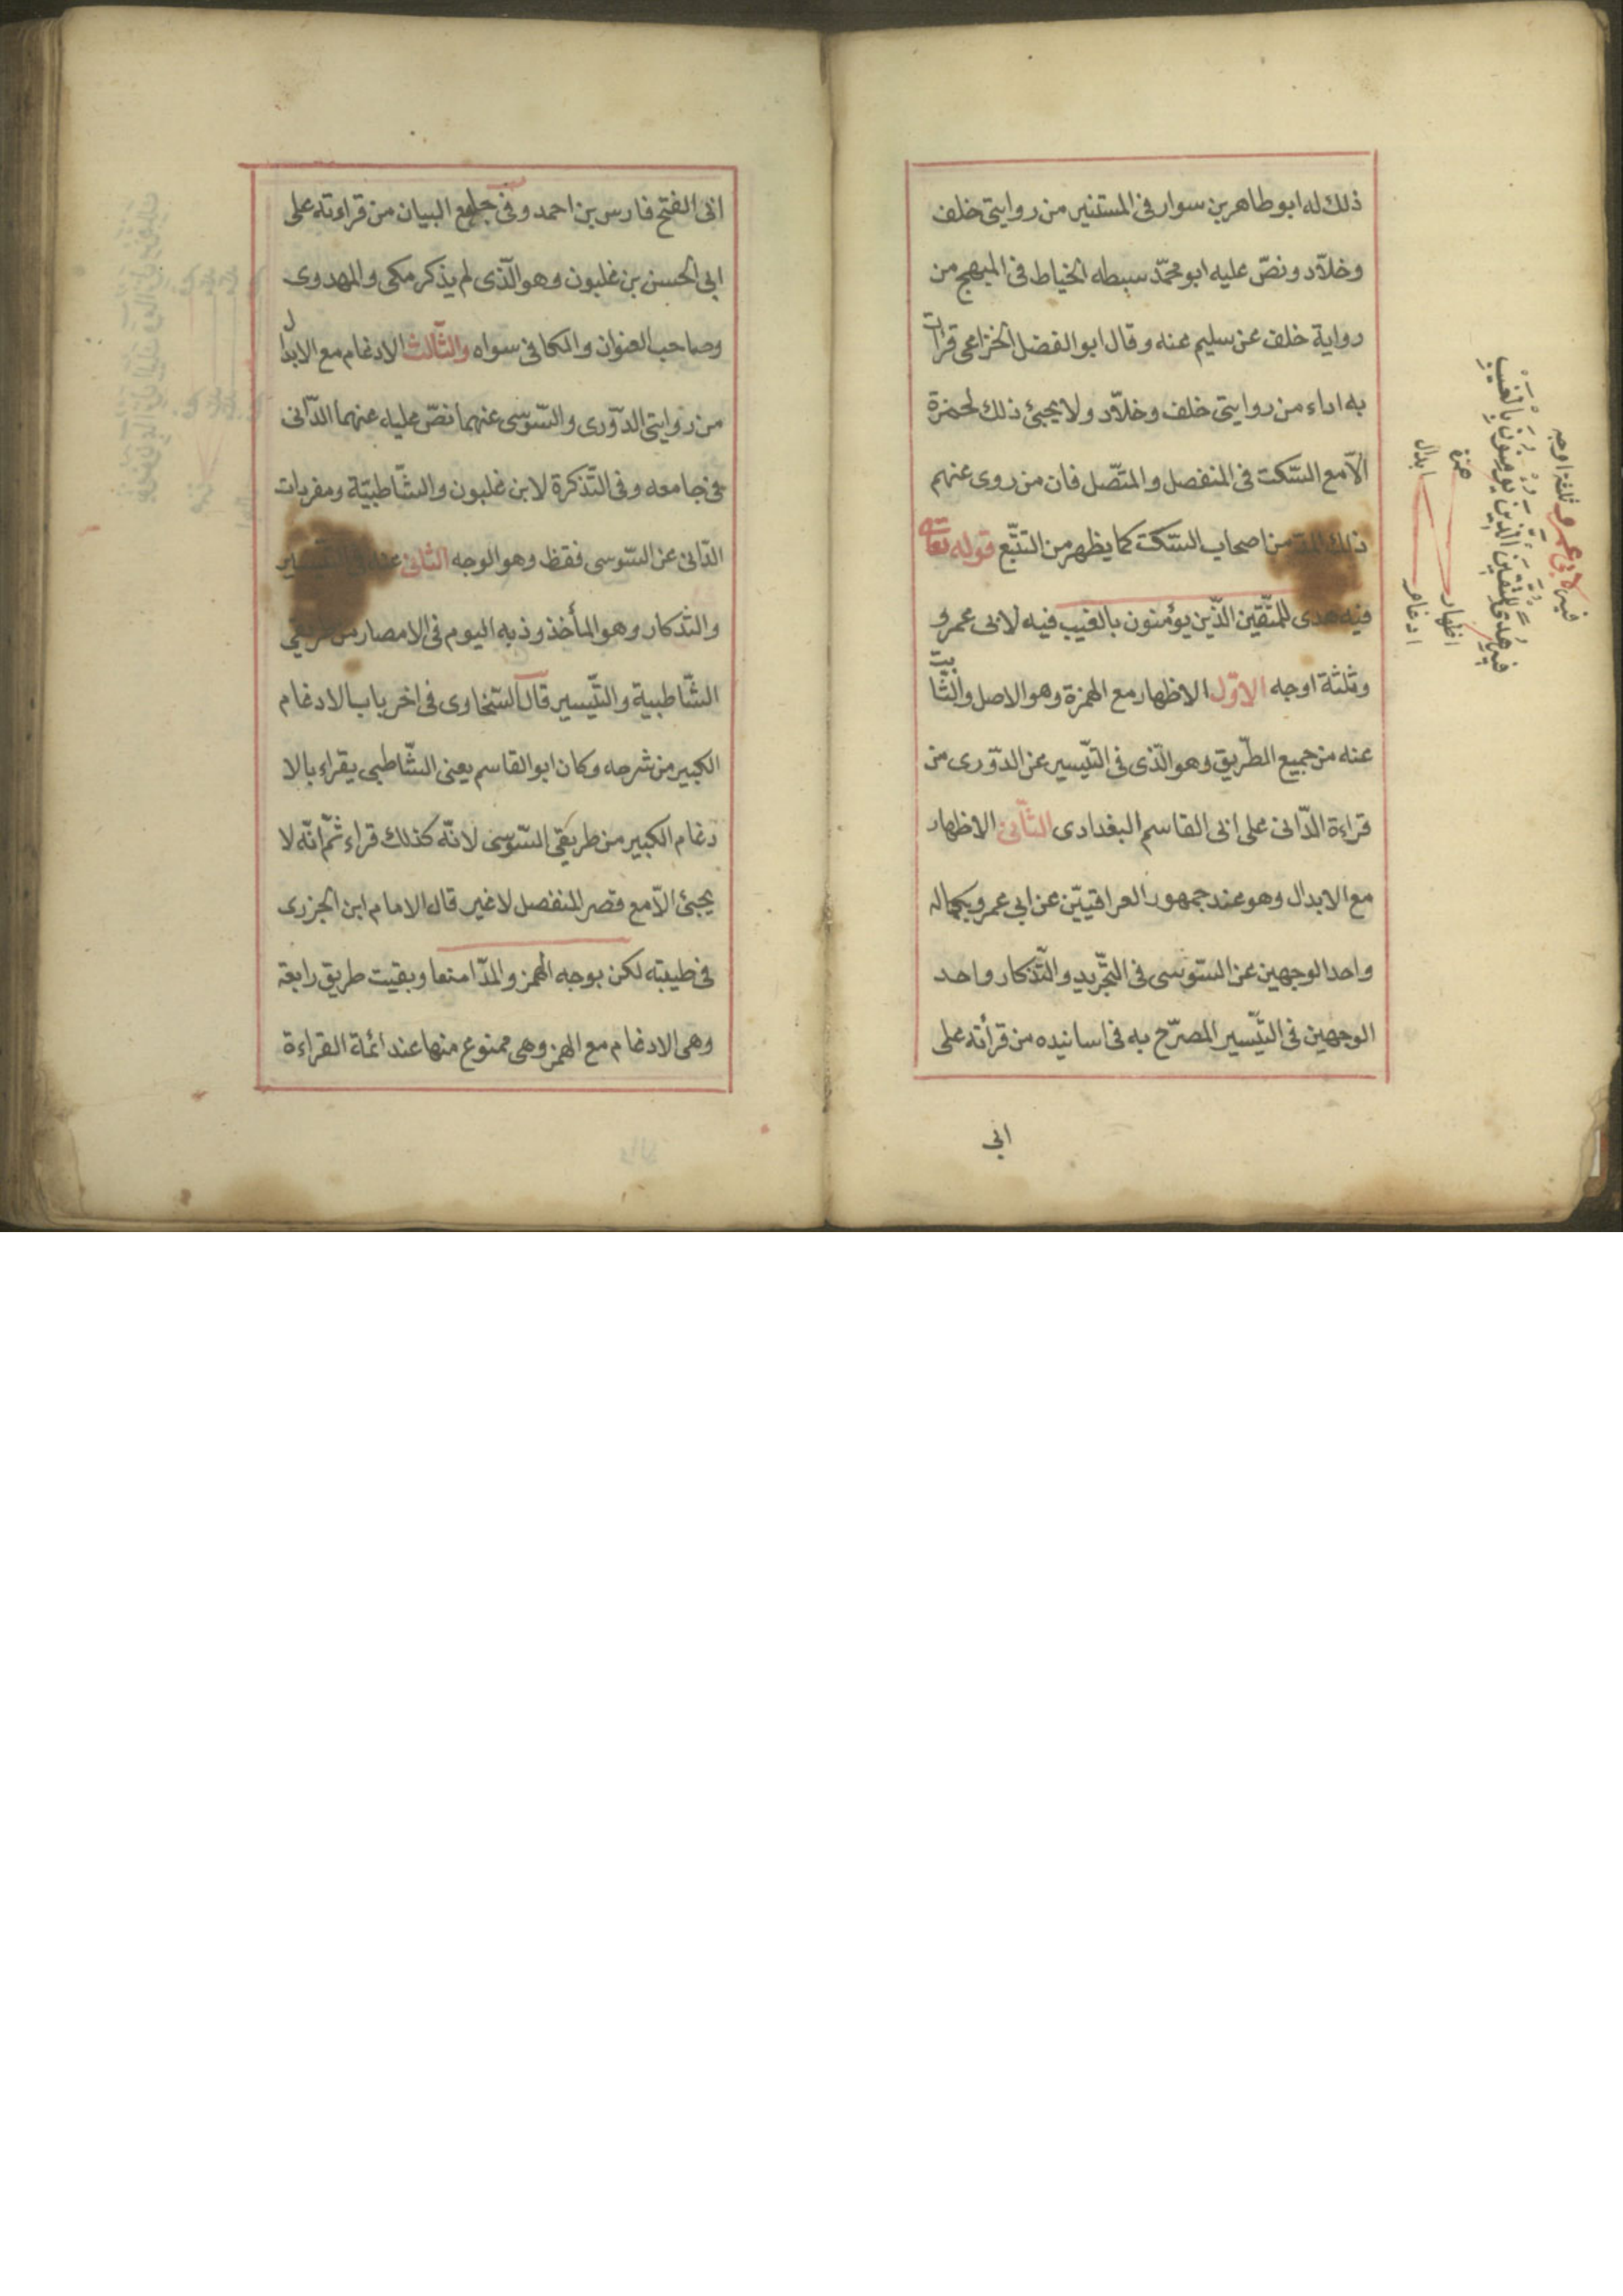 ذلك له ابو طاهر بن سوار فى المستنير من روايتى خلف
وخلّاد ونصّ عليه ابو محمّد سبطه الخياط فى المبهج من
رواية خلف عن سليم عنه وقال ابو الفضل الخزاعى قرات
به اداء من روايتى خلف وخلّاد ولا يجيئ ذلك لحمزة
الّا مع السّكت فى المنفصل والمتّصل فان من روى عنهم
ذلك المد من اصحاب السّكت كما يظهر من التتبّع قوله تعالى
فيه هدى للمتّقين الّذين يؤمنون بالغيب فيه لابى عمرو
وثلثة اوجه الاوّل الاظهار مع الهمزة وهو الاصل والثابت
عنه من جميع الطّريق وهو الّذى فى التّيسير عن الدّورى من
قراءة الدّانى على ابى القاسم البغدادى الثّانى الاظهار
مع الابدال وهو عند جمهور العراقيّين عن ابي عمرو بكماله
واحد الوجهين عن السّوسى فى التّجريد والتّذكار واحد
الوجهين فى التّيسير المصرّح به فى اسانيده من قرأته على
ابى
فيه لابى عمرو ثلثة اوجه
فيه هدى للمتقين الذين يؤمنون بالغيب
همزة
ابدال
اظهار
ادغام
ابى الفتح فارس بن احمد وفى جامع البيان من قراءته على
ابى الحسن بن غلبون وهو الّذى لم يذكر مكى والمهدوى
وصاحب العنوان والكافى سواه والثّالث الادغام مع الابدال
من روايتى الدّورى والسّوسى عنهما نصّ عليه عنهما الدّانى
فى جامعه وفى التّذكرة لابن غلبون والشّاطبيّة ومفردات
الدّانى عن السّوسى فقط وهو الوجه الثانى عنه فى التّيسير
والتذكار وهو المأخوذ به اليوم فى الامصار من طريقى
الشّاطبية والتّيسير قال السّخاوى فى اخر باب الادغام
الكبير من شرحه وكان ابو القاسم يعنى الشّاطبى يقراء بالا
دغام الكبير من طريقى السّوسى لانّه كذلك قراء ثمّ انّه لا
يجيئ الّا مع قصر المنفصل لا غير قال الامام ابن الجزرى
فى طيبته لكن بوجه الهمز والمدّ امنعا وبقيت طريق رابعة
وهى الادغام مع الهمز وهى ممنوع منها عند ائمة القراءة